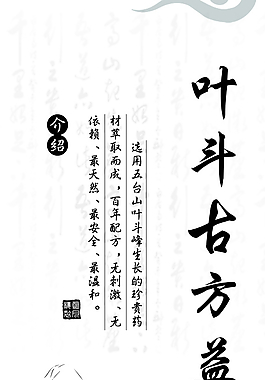 叶斗古方益
介绍
选用五台山叶斗峰生长的珍贵药
材萃取而成，百年配方，无刺激、无
依赖、最天然、最安全、最温和。